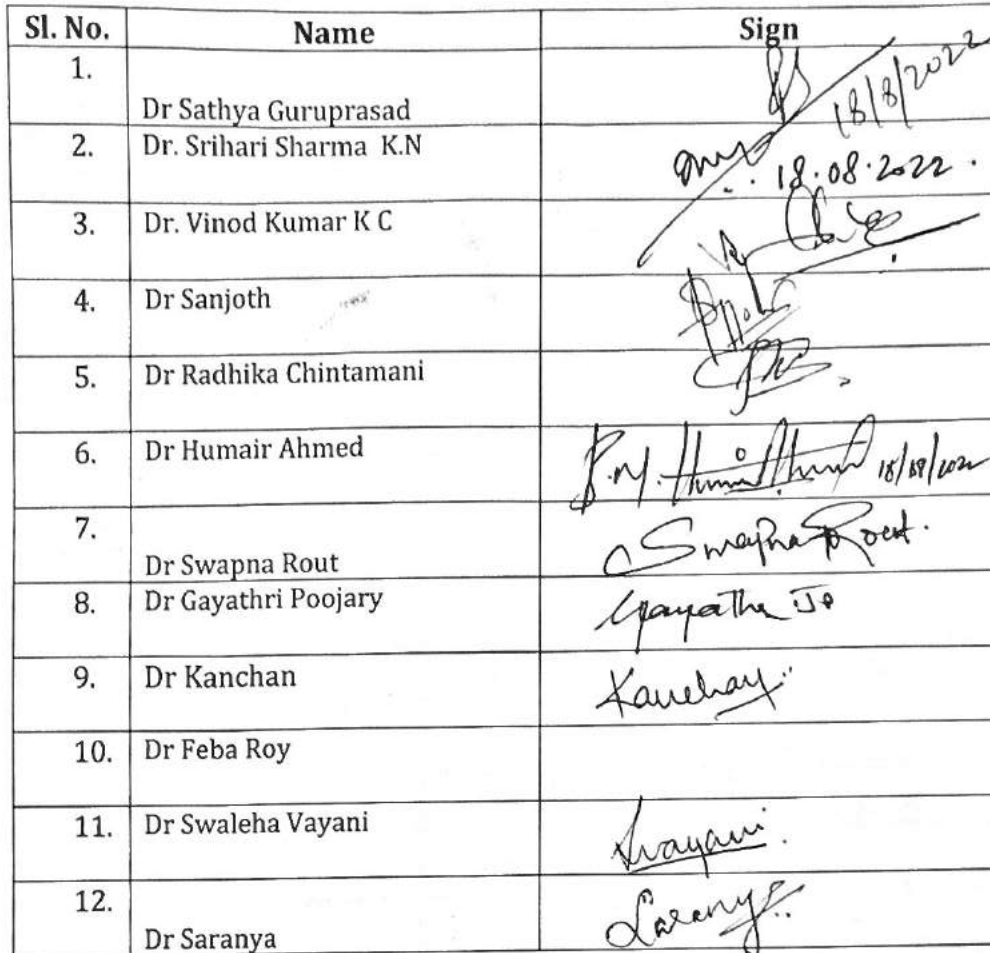 Sl. No. Name Sign
1. Dr Sathya Guruprasad 18/8/2022
2. Dr. Srihari Sharma K.N 18.08.2022.
3. Dr. Vinod Kumar K C
4. Dr Sanjoth
5. Dr Radhika Chintamani
6. Dr Humair Ahmed
7. Dr Swapna Rout Swapna Rout.
8. Dr Gayathri Poojary
9. Dr Kanchan Kanchan
10. Dr Feba Roy
11. Dr Swaleha Vayani
12. Dr Saranya